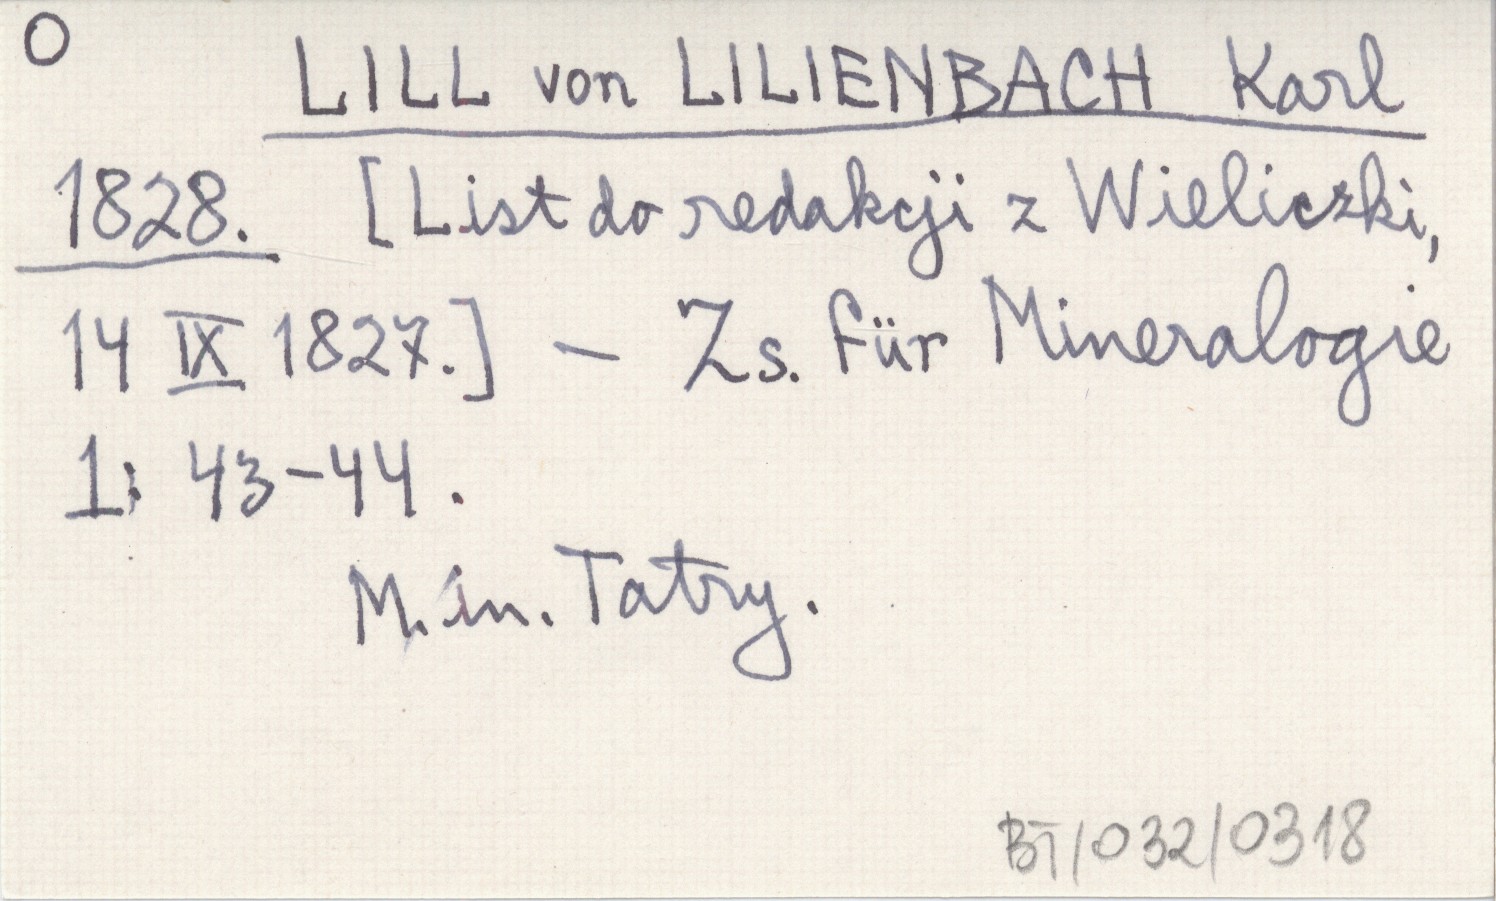 O
LILL von LILIENBACH Karl
1828. [List do redakcji z Wieliczki,
14 IX 1827.] – Zs. für Mineralogie
1: 43-44.
M. in. Tatry.
BT/032/0318